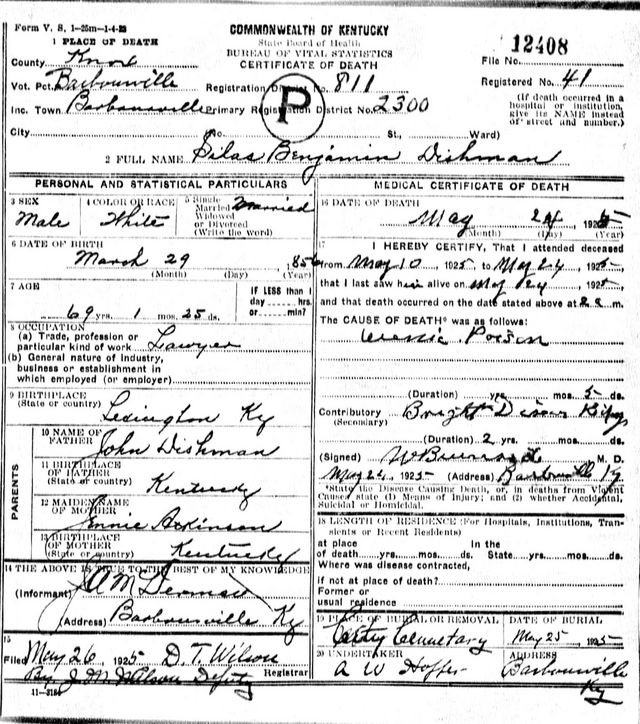 Form V. S. 1-25m-1-4-23
COMMONWEALTH OF KENTUCKY
State Board of Health
BUREAU OF VITAL STATISTICS
CERTIFICATE OF DEATH
1 PLACE OF DEATH
County Knox
File No. 12408
Vot. Pct. Barbourville
Registration District No. 811
Registered No. 41
Inc. Town Barbourville
Primary Registration District No. 2300
P
(If death occurred in a hospital or institution, give its NAME instead of street and number.)
City (No. St., Ward)
2 FULL NAME Silas Benjamin Dishman
PERSONAL AND STATISTICAL PARTICULARS
3 SEX Male
4 COLOR OR RACE White
5 Single Married Widowed or Divorced (Write the word) Married
6 DATE OF BIRTH
March 29 1856
(Month) (Day) (Year)
7 AGE
69 yrs. 1 mos. 25 ds.
IF LESS than 1 day hrs. or min?
8 OCCUPATION
(a) Trade, profession or particular kind of work Lawyer
(b) General nature of industry, business or establishment in which employed (or employer)
9 BIRTHPLACE
(State or country) Lexington Ky
PARENTS
10 NAME OF FATHER John Dishman
11 BIRTHPLACE OF FATHER
(State or country) Kentucky
12 MAIDEN NAME OF MOTHER Adkinson
13 BIRTHPLACE OF MOTHER
(State or country) Kentucky
14 THE ABOVE IS TRUE TO THE BEST OF MY KNOWLEDGE
(Informant)
(Address) Barbourville Ky
15
Filed May 26, 1925 D. T. Wilson
Registrar
By J M Wilson Deputy
11-3184
MEDICAL CERTIFICATE OF DEATH
16 DATE OF DEATH
May 24, 1925
(Month) (Day) (Year)
17 I HEREBY CERTIFY, That I attended deceased
from May 10 1925 to May 24, 1925
that I last saw him alive on May 24 1925,
and that death occurred on the date stated above at 2 a m.
The CAUSE OF DEATH* was as follows:
Uremic Poison
(Duration) yrs. mos. 5 ds.
Contributory Brights
(Secondary)
(Duration) 2 yrs. mos. ds.
(Signed) M. D.
May 24 1925 (Address) Barbourville Ky
*State the Disease Causing Death, or, in deaths from Violent Causes state (1) Means of Injury; and (2) whether Accidental, Suicidal or Homicidal.
18 LENGTH OF RESIDENCE (For Hospitals, Institutions, Transients or Recent Residents)
at place of death yrs. mos. ds. In the State yrs. mos. ds.
Where was disease contracted,
if not at place of death?
Former or usual residence
19 PLACE OF BURIAL OR REMOVAL
Cemetary
DATE OF BURIAL
May 25, 1925
20 UNDERTAKER
A W Hopper
ADDRESS
Barbourville
Ky